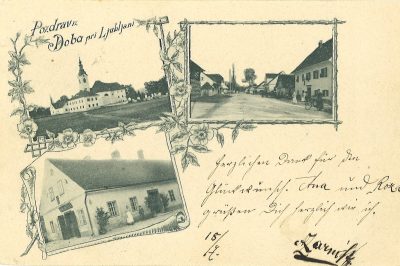 Pozdrav iz
Doba pri Ljubljani
Herzlichen Dank für den
Glückwunsch. Ana und Roza
grüßen Dich herzlich wie ich.
15/